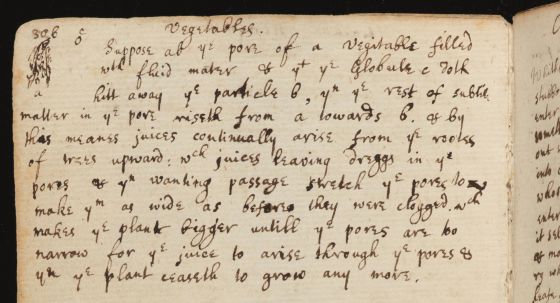 306 Vegetables.
6
c Suppose ab yᵉ pore of a Vegitable filled
wᵗʰ fluid mater & yᵗ yᵉ Globule c doth
a hitt away yᵉ particle b, yⁿ yᵉ rest of subtile
matter in yᵉ pore riseth from a towards b. & by
this meanes juices continually arise from yᵉ rootes
of trees upward: wᶜʰ juices leaving dreggs in yᵉ
pores & yⁿ wanting passage stretch yᵉ pores to
make yᵐ as wide as before they were clogged. wᶜʰ
makes yᵉ plant bigger untill yᵉ pores are too
narrow for yᵉ juice to arise through yᵉ pores &
yⁿ yᵉ plant ceaseth to grow any more.